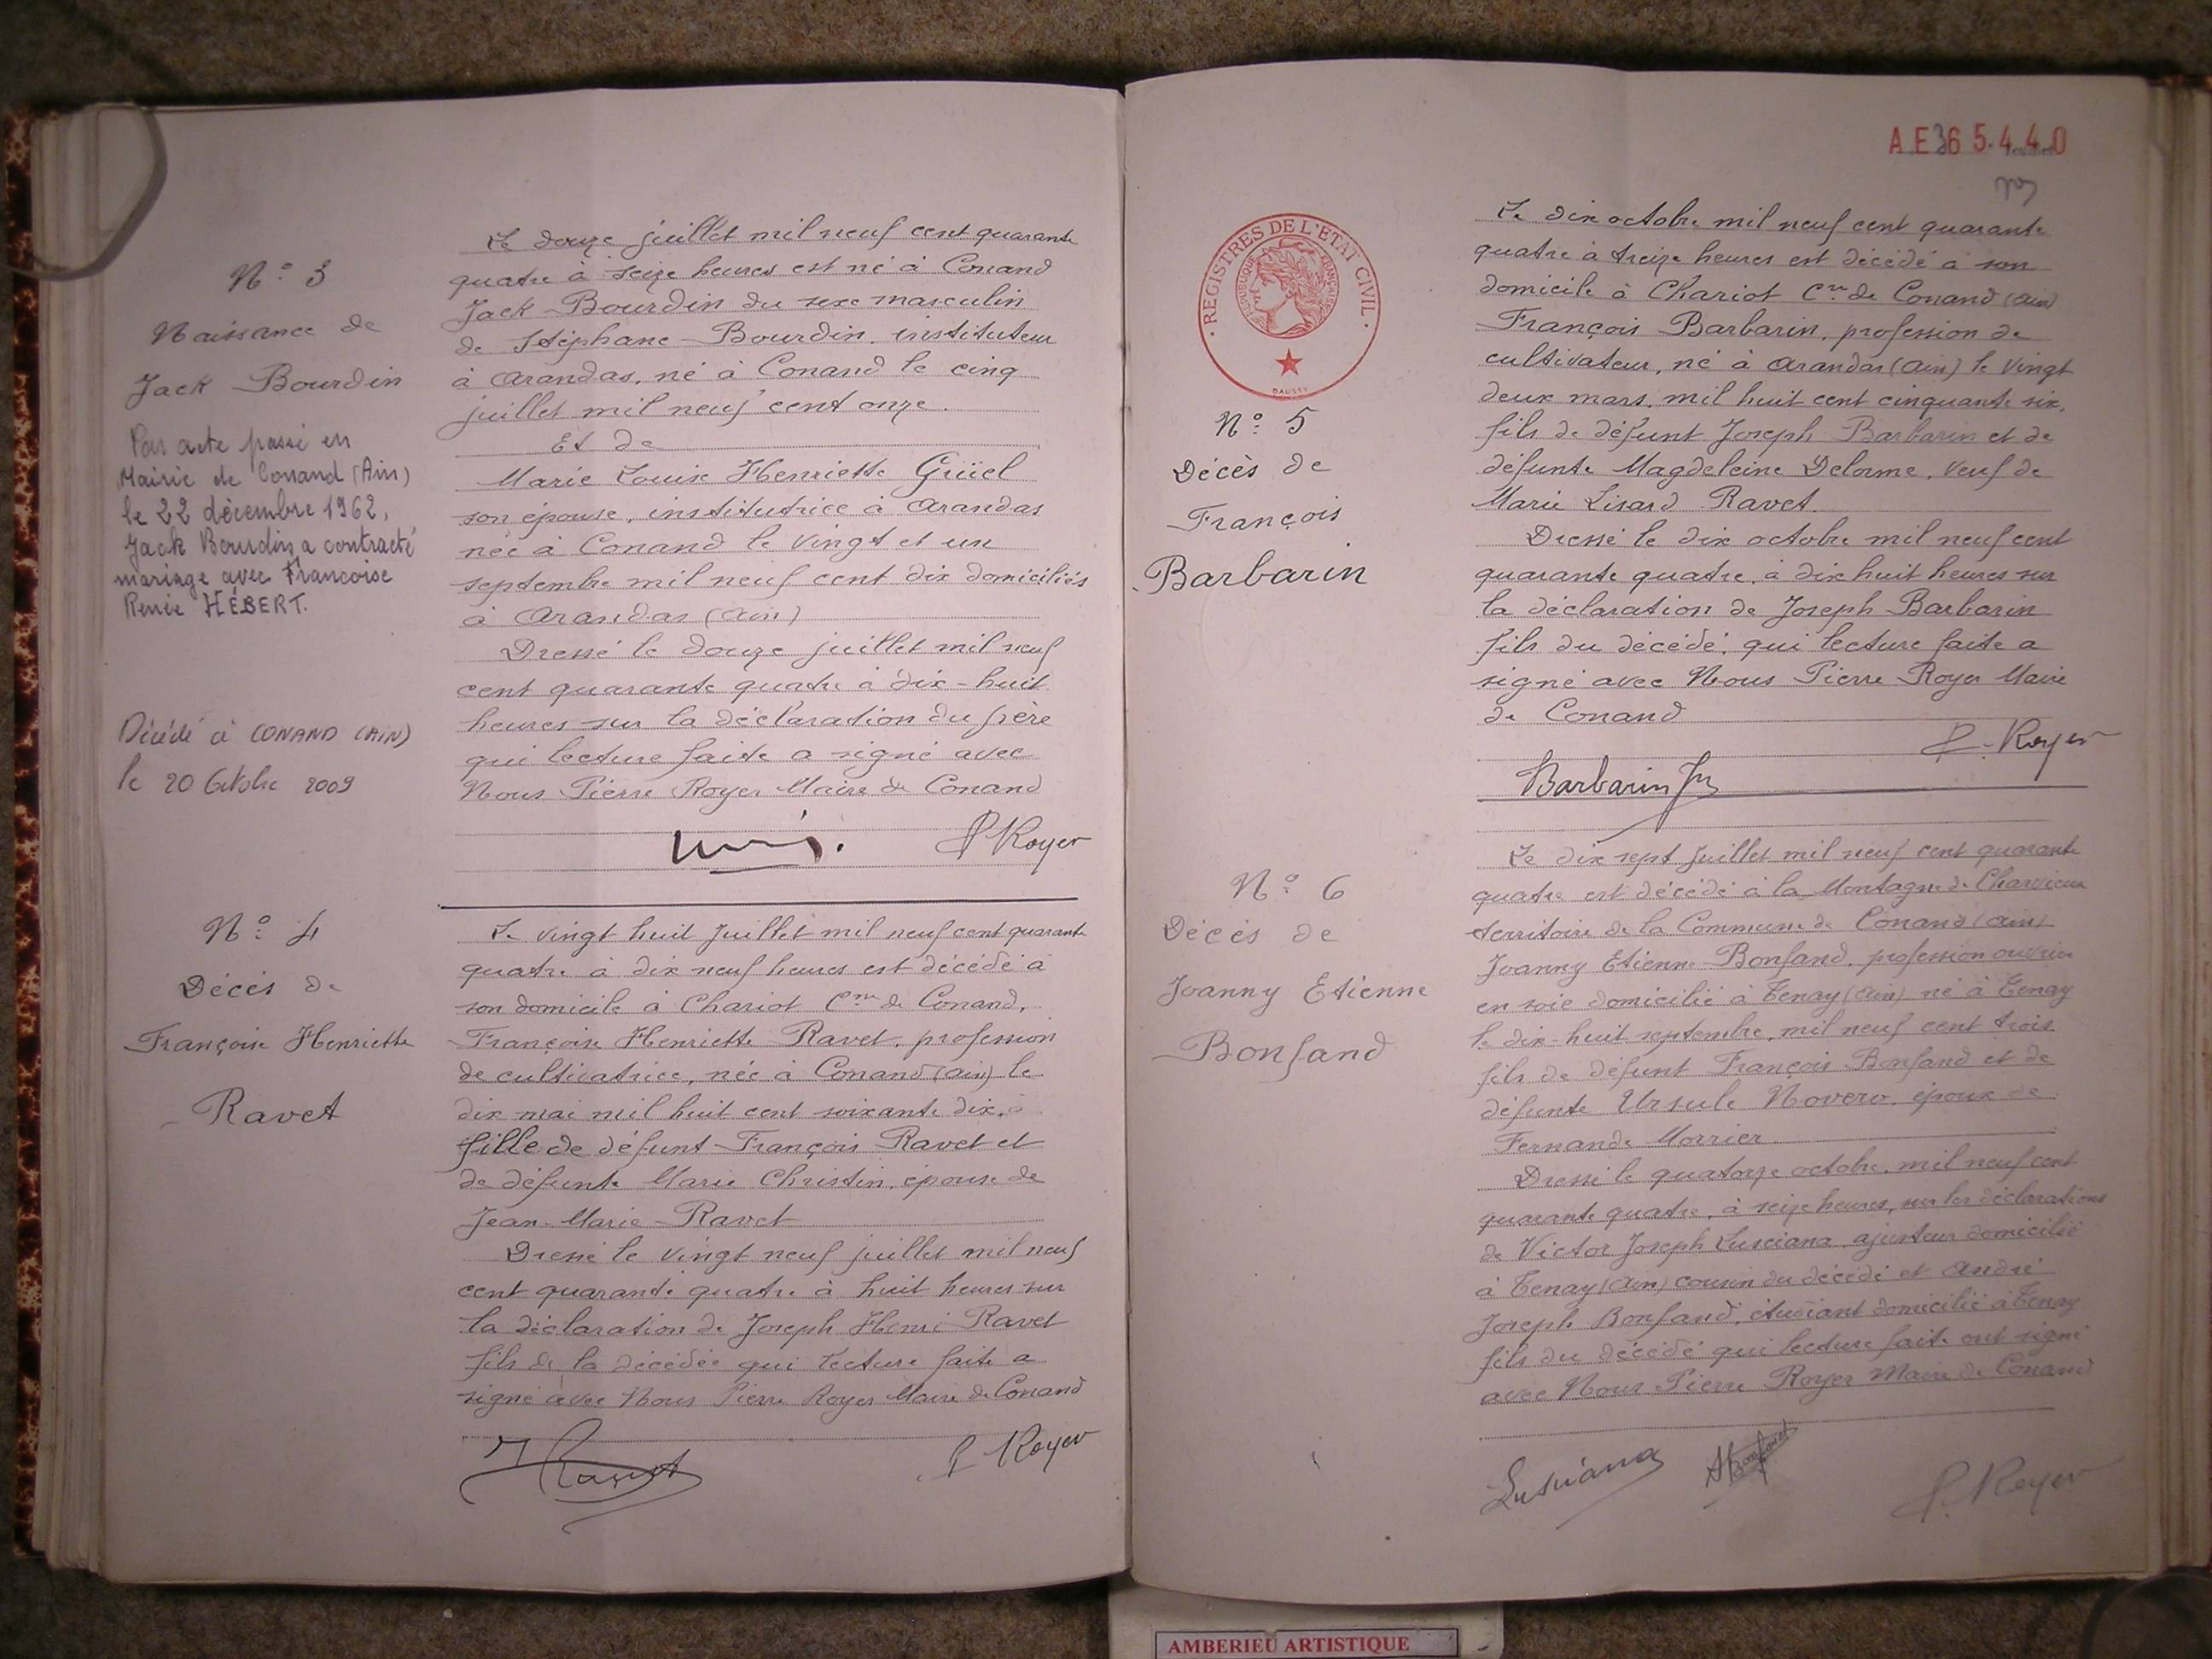 N° 3
Naissance de
Jack Bourdin
Par acte passé en
Mairie de Conand (Ain)
le 22 décembre 1962,
Jack Bourdin a contracté
mariage avec Françoise
Renée HÉBERT.
Décédé à CONAND (AIN)
le 20 Octobre 2009
Le douze juillet mil neuf cent quarante
quatre à seize heures est né à Conand
Jack Bourdin du sexe masculin
de Stéphane Bourdin, instituteur
à Arandas, né à Conand le cinq
juillet mil neuf cent onze.
Et de
Marie Louise Henriette Grüel
son épouse, institutrice à Arandas
née à Conand le vingt et un
septembre mil neuf cent dix domiciliés
à Arandas (Ain)
Dressé le douze juillet mil neuf
cent quarante quatre à dix-huit
heures sur la déclaration du père
qui lecture faite a signé avec
Nous Pierre Royer Maire de Conand
P Royer
N° 4
Décès de
Françoise Henriette
Ravet
Le vingt huit Juillet mil neuf cent quarante
quatre à dix neuf heures est décédé à
son domicile à Chariot Cne de Conand,
Françoise Henriette Ravet, profession
de cultivatrice, née à Conand (Ain) le
dix mai mil huit cent soixante dix,
fille de défunt François Ravet et
de défunte Marie Christin, épouse de
Jean-Marie Ravet
Dressé le vingt neuf juillet mil neuf
cent quarante quatre à huit heures sur
la déclaration de Joseph Henri Ravet
fils de la décédée qui lecture faite a
signé avec Nous Pierre Royer Maire de Conand
Ravet
P Royer
AE365440
REGISTRES DE L'ETAT CIVIL
REPUBLIQUE FRANÇAISE
DAUSSY
N° 5
Décès de
François
Barbarin
Le dix octobre mil neuf cent quarante
quatre à treize heures est décédé à son
domicile à Chariot Cne de Conand (Ain)
François Barbarin, profession de
cultivateur, né à Arandas (Ain) le vingt
deux mars, mil huit cent cinquante six,
fils de défunt Joseph Barbarin et de
défunte Magdeleine Delorme, veuf de
Marie Lisard Ravet.
Dressé le dix octobre mil neuf cent
quarante quatre, à dix huit heures sur
la déclaration de Joseph Barbarin
fils du décédé, qui lecture faite a
signé avec Nous Pierre Royer Maire
de Conand
P. Royer
Barbarin
N° 6
Décès de
Joanny Etienne
Bonfand
Le dix sept Juillet mil neuf cent quarante
quatre est décédé à la Montagne de Charvieux
territoire de la Commune de Conand (Ain)
Joanny Etienne Bonfand, profession ouvrier
en soie domicilié à Tenay (Ain) né à Tenay
le dix-huit septembre, mil neuf cent trois
fils de défunt François Bonfand et de
défunte Ursule Novero, époux de
Fernande Morrier
Dressé le quatorze octobre, mil neuf cent
quarante quatre, à seize heures, sur les déclarations
de Victor Joseph Lusciana, ajusteur domicilié
à Tenay (Ain) cousin du décédé et André
Joseph Bonfand, étudiant domicilié à Tenay
fils du décédé qui lecture faite ont signé
avec Nous Pierre Royer Maire de Conand
Lusciana
Bonfand
P. Royer
AMBERIEU ARTISTIQUE